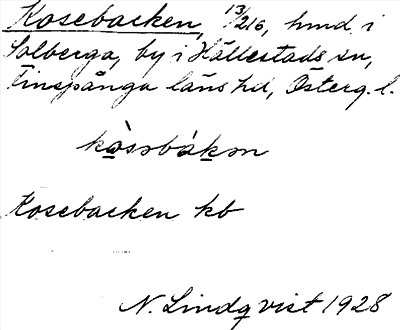 Kosebacken, 13/216, hmd. i
Solberga, by i Hällestads sn,
Finspånga läns hd, Österg. l.
kòsəbákən
Kosebacken kb
N. Lindqvist 1928